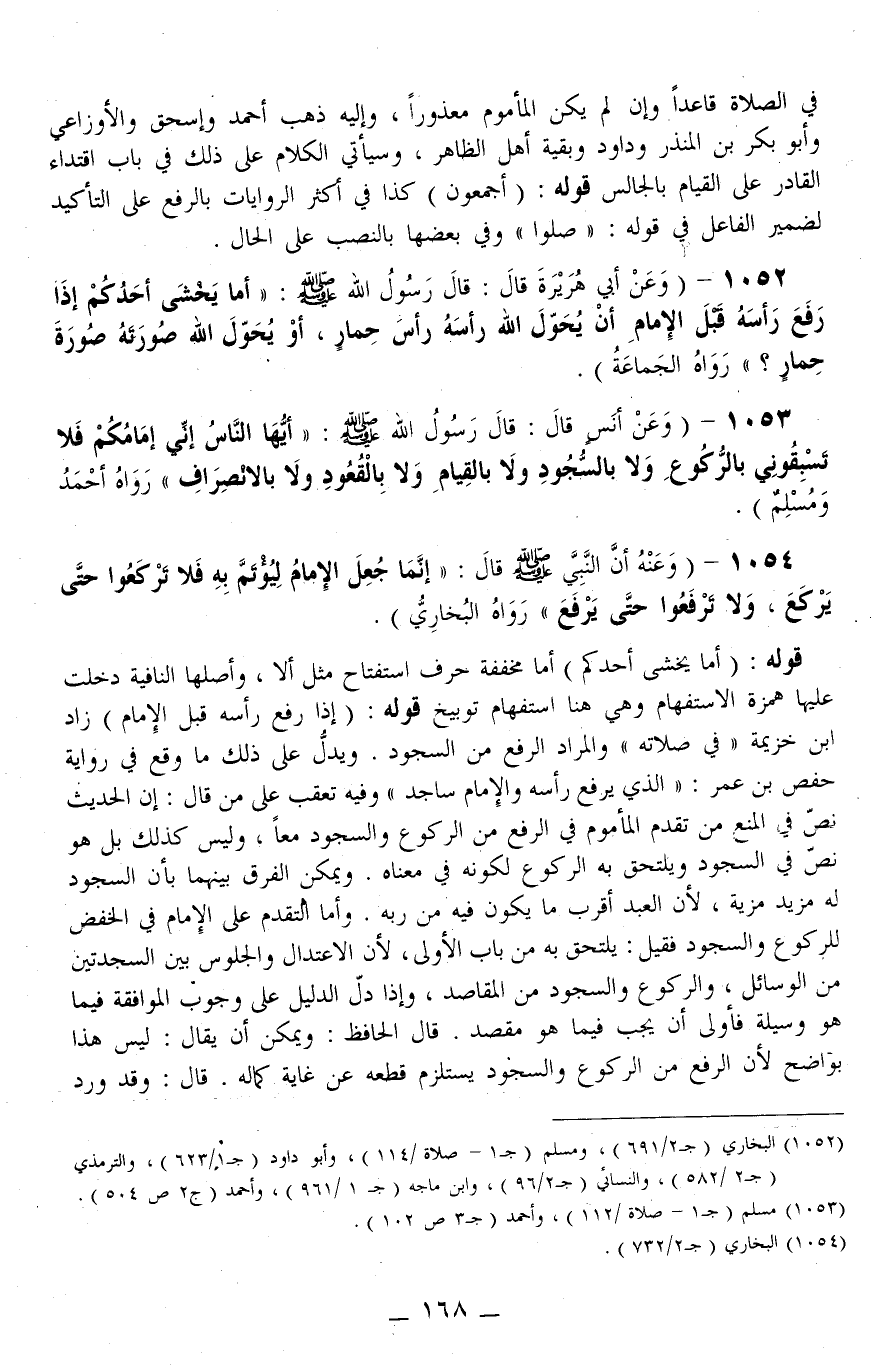 في الصلاة قاعداً وإن لم يكن المأموم معذوراً ، وإليه ذهب أحمد وإسحق والأوزاعي
وأبو بكر بن المنذر وداود وبقية أهل الظاهر ، وسيأتي الكلام على ذلك في باب اقتداء
القادر على القيام بالجالس قوله : ( أجمعون ) كذا في أكثر الروايات بالرفع على التأكيد
لضمير الفاعل في قوله : « صلوا » وفي بعضها بالنصب على الحال .
١٠٥٢ – ( وَعَنْ أبي هُرَيْرَةَ قالَ : قالَ رَسُولُ الله ﷺ : « أما يَخْشَى أحَدُكُمْ إذَا
رَفَعَ رَأسَهُ قَبْلَ الإِمامِ أنْ يُحَوّلَ الله رأسَهُ رأسَ حِمارٍ ، أوْ يُحَوّلَ الله صُورَتَهُ صُورَةَ
حِمارٍ ؟ » رَوَاهُ الجَماعَةُ ) .
١٠٥٣ – ( وَعَنْ أنَسٍ قالَ : قالَ رَسُولُ الله ﷺ : « أيُّهَا النَّاسُ إنّي إمَامُكُمْ فَلا
تَسْبِقُونِي بالرُّكُوعِ وَلا بالسُّجُودِ ولَا بالقِيامِ وَلا بِالْقُعُودِ ولَا بالانْصِرَافِ » رَوَاهُ أحْمَدُ
وَمُسْلِمٌ ) .
١٠٥٤ – ( وَعَنْهُ أنَّ النَّبِيَّ ﷺ قالَ : « إنَّمَا جُعِلَ الإِمامُ لِيُؤْتَمَّ بِهِ فَلا تَرْكَعُوا حتَّى
يَرْكَعَ ، وَلا تَرْفَعُوا حتَّى يَرْفَعَ » رَوَاهُ البُخارِيُّ ) .
قوله : ( أما يخشى أحدكم ) أما مخففة حرف استفتاح مثل ألا ، وأصلها النافية دخلت
عليها همزة الاستفهام وهي هنا استفهام توبيخ قوله : ( إذا رفع رأسه قبل الإمام ) زاد
ابن خزيمة « في صلاته » والمراد الرفع من السجود . ويدلُّ على ذلك ما وقع في رواية
حفص بن عمر : « الذي يرفع رأسه والإمام ساجد » وفيه تعقب على من قال : إن الحديث
نصّ في المنع من تقدم المأموم في الرفع من الركوع والسجود معاً ، وليس كذلك بل هو
نصّ في السجود ويلتحق به الركوع لكونه في معناه . ويمكن الفرق بينهما بأن السجود
له مزيد مزية ، لأن العبد أقرب ما يكون فيه من ربه . وأما التقدم على الإمام في الخفض
للركوع والسجود فقيل : يلتحق به من باب الأولى، لأن الاعتدال والجلوس بين السجدتين
من الوسائل ، والركوع والسجود من المقاصد ، وإذا دلّ الدليل على وجوب الموافقة فيما
هو وسيلة فأولى أن يجب فيما هو مقصد . قال الحافظ : ويمكن أن يقال : ليس هذا
بواضح لأن الرفع من الركوع والسجود يستلزم قطعه عن غاية كماله . قال : وقد ورد
(١٠٥٢) البخاري ( جـ٦٩١/٢ ) ، ومسلم ( جـ١ – صلاة /١١٤ ) ، وأبو داود ( جـ٦٢٣/١ ) ، والترمذي
( جـ٢ /٥٨٢ ) ، والنسائي ( جـ٩٦/٢ ) ، وابن ماجه ( جـ ١ /٩٦١ ) ، وأحمد ( ج٢ ص ٥٠٤ ) .
(١٠٥٣) مسلم ( جـ١ – صلاة /١١٢ ) ، وأحمد ( جـ٣ ص ١٠٢ ) .
(١٠٥٤) البخاري ( جـ٧٣٢/٢ ) .
– ١٦٨ –